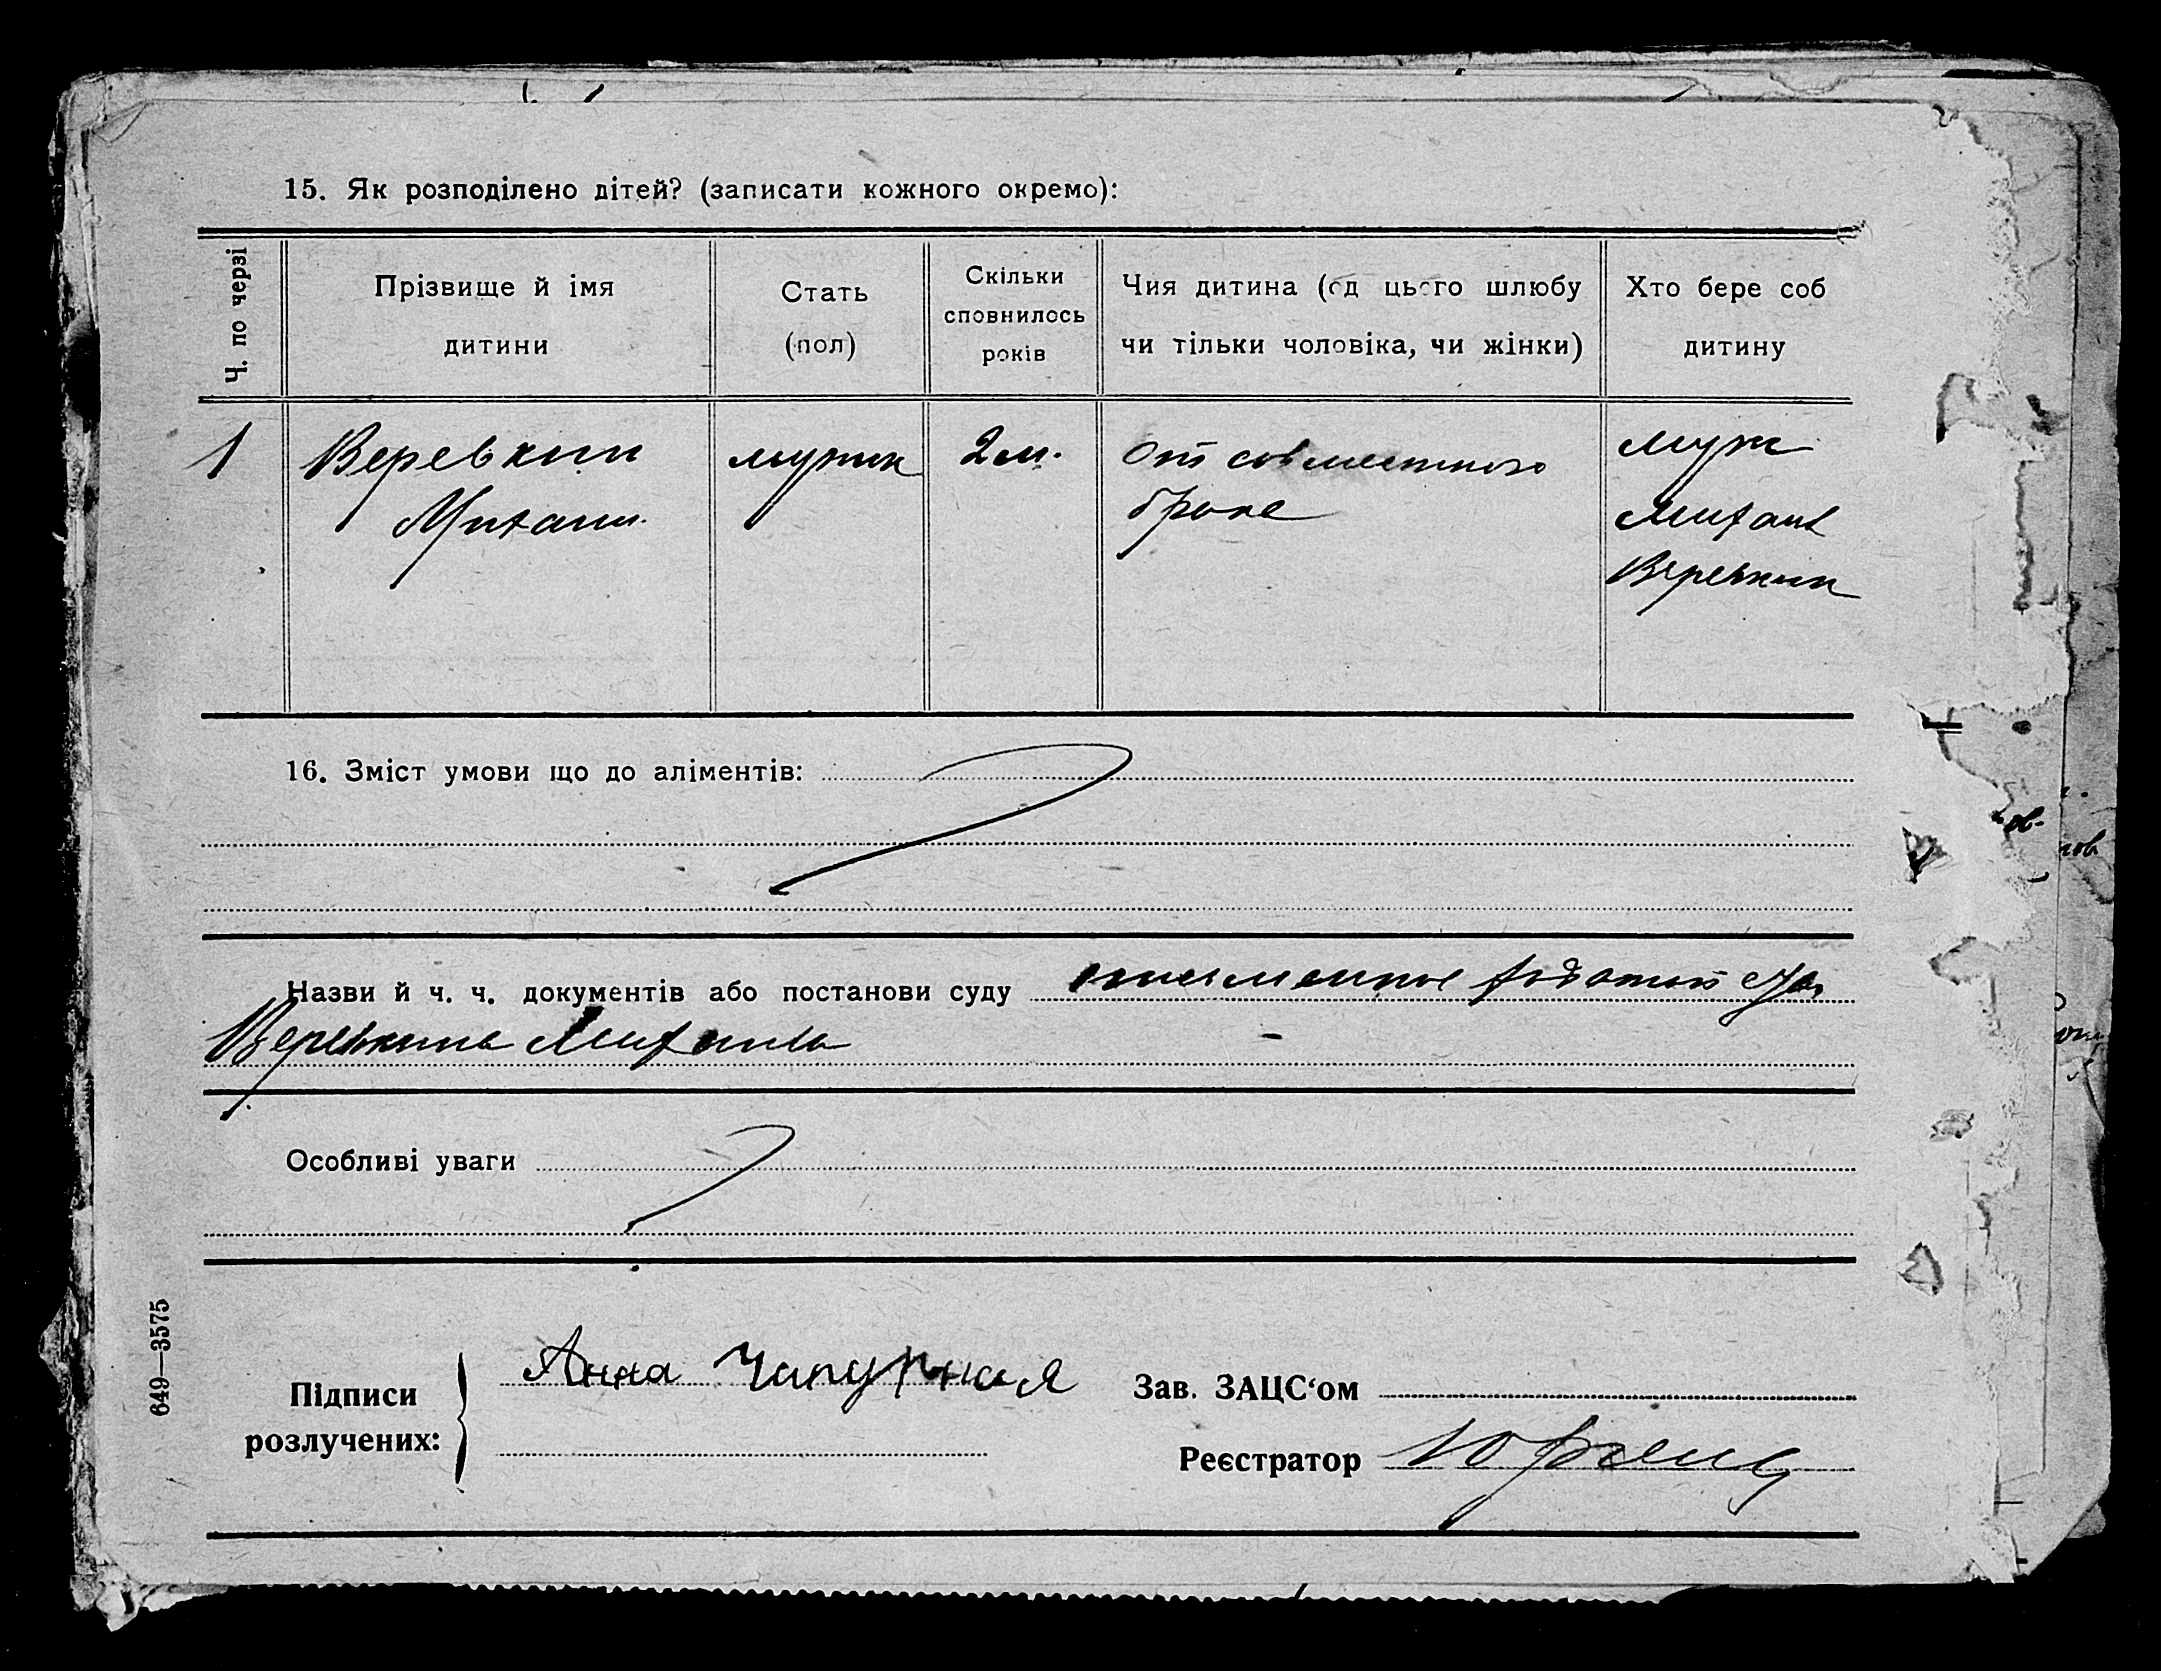 15. Як розподілено дітей? (записати кожного окремо):
Ч. по черзі
Прізвище й імя
дитини
Стать
(пол)
Скільки
сповнилось
років
Чия дитина (од цього шлюбу
чи тільки чоловіка, чи жінки)
Хто бере соб
дитину
1
Веревкин
Михаил.
мужск
2 м.
от совместного
браке
муж
Михаил
Веревкин
16. Зміст умови що до аліментів:
Назви й ч. ч. документів або постанови суду
Веревкина Михаила
Особливі уваги
649—3575
Підписи
розлучених:
Анна Чапурная
Зав. ЗАЦС‘ом
Реєстратор